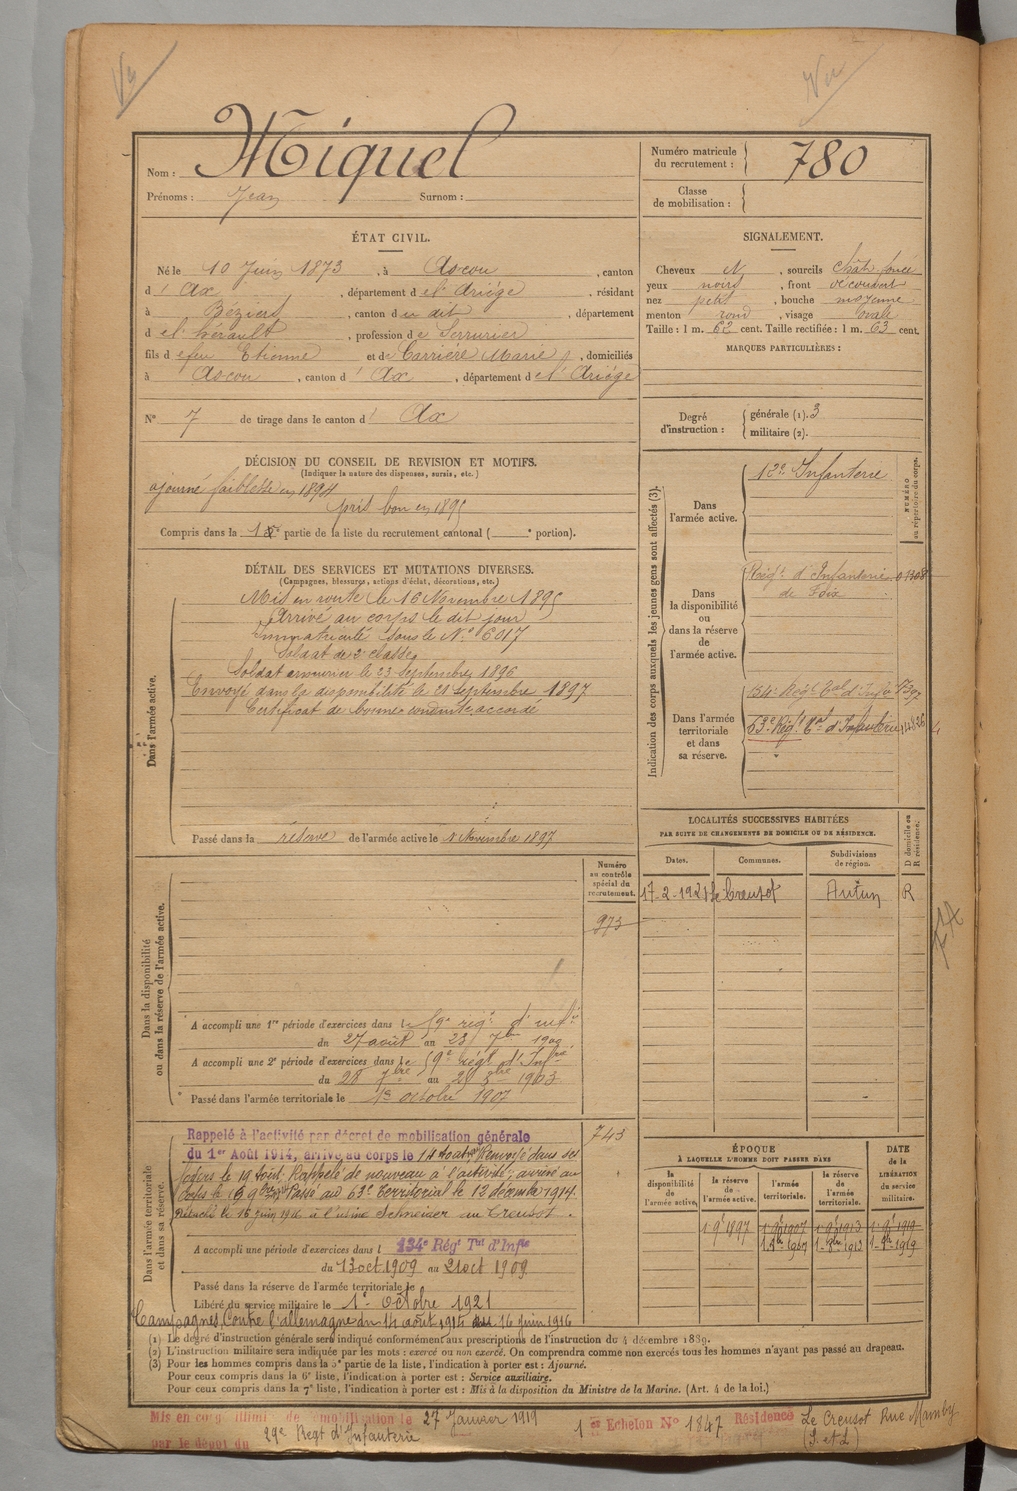 Vu
Vu
Nom : Miquel
Prénoms : Jean Surnom :
Numéro matricule du recrutement : 780
Classe de mobilisation :
ÉTAT CIVIL.
Né le 10 Juin 1873, à Ascou, canton
d' Ax, département de l'Ariège, résidant
à Béziers, canton du dit, département
de l'hérault, profession de Serrurier
fils de feu Etienne et de Carrière Marie, domiciliés
à Ascou, canton d' Ax, département de l'Ariège
N° 7 de tirage dans le canton d' Ax
SIGNALEMENT.
Cheveux N, sourcils chât. foncé
yeux noirs, front découvert
nez petit, bouche moyenne
menton rond, visage ovale
Taille : 1 m. 62 cent. Taille rectifiée : 1 m. 63 cent.
MARQUES PARTICULIÈRES :
Degré d'instruction : générale (1). 3
militaire (2).
DÉCISION DU CONSEIL DE REVISION ET MOTIFS.
(Indiquer la nature des dispenses, sursis, etc.)
ajourné faiblesse en 1894
pris bon en 1895
Compris dans la 1e partie de la liste du recrutement cantonal ( e portion).
DÉTAIL DES SERVICES ET MUTATIONS DIVERSES.
(Campagnes, blessures, actions d'éclat, décorations, etc.)
Dans l'armée active.
Mis en route le 16 Novembre 1895
Arrivé au corps le dit jour
Immatriculé sous le N° 6017
Soldat de 2e classe
Soldat armurier le 23 Septembre 1896
Envoyé dans la disponibilité le 21 Septembre 1897
Certificat de bonne conduite accordé
Passé dans la réserve de l'armée active le Novembre 1897
Indication des corps auxquels les jeunes gens sont affectés (3).
NUMÉRO au répertoire du corps.
Dans l'armée active.
12e Infanterie
Dans la disponibilité ou dans la réserve de l'armée active.
Régt d'Infanterie 01308
de Foix
Dans l'armée territoriale et dans sa réserve.
134e Régt Tal d'Infie
63e Régt Tal d'Infanterie
LOCALITÉS SUCCESSIVES HABITÉES
PAR SUITE DE CHANGEMENTS DE DOMICILE OU DE RÉSIDENCE.
Dates. Communes. Subdivisions de région. D domicile ou R résidence.
17-2-1921 le Creusot Autun R
Dans la disponibilité ou dans la réserve de l'armée active.
Numéro au contrôle spécial du recrutement.
973
A accompli une 1re période d'exercices dans le 59e régt d'infie
du 27 août au 23 7bre 1900
A accompli une 2e période d'exercices dans le 59e Régt d'Infie
du 28 7bre au 25 8bre 1903
Passé dans l'armée territoriale le 1er octobre 1907
Dans l'armée territoriale et dans sa réserve.
743
Rappelé à l'activité par décret de mobilisation générale
du 1er Août 1914, arrivé au corps le 14 août. Renvoyé dans ses
foyers le 19 août. Rappelé de nouveau à l'activité, arrivé au
corps le Passé au 63e Territorial le 12 décembre 1914.
Détaché le 16 juin 1916 à l'usine Schneider au Creusot.
A accompli une période d'exercices dans l 134e Régt Tal d'Infie
du 13 oct 1909 au 21 oct 1909
Passé dans la réserve de l'armée territoriale le
Libéré du service militaire le 1er Octobre 1921
Campagnes Contre l'allemagne du 14 août 1914 au 16 juin 1916
ÉPOQUE
À LAQUELLE L'HOMME DOIT PASSER DANS
DATE de la LIBÉRATION du service militaire.
la disponibilité de l'armée active, la réserve de l'armée active. l'armée territoriale. la réserve de l'armée territoriale.
1 9bre 1897 1 9bre 1907 1 9bre 1913 1 9bre 1919
1 8bre 1907 1 8bre 1913 1 8bre 1919
(1) Le degré d'instruction générale sera indiqué conformément aux prescriptions de l'instruction du 4 décembre 1889.
(2) L'instruction militaire sera indiquée par les mots : exercé ou non exercé. On comprendra comme non exercés tous les hommes n'ayant pas passé au drapeau.
(3) Pour les hommes compris dans la 5e partie de la liste, l'indication à porter est : Ajourné.
Pour ceux compris dans la 6e liste, l'indication à porter est : Service auxiliaire.
Pour ceux compris dans la 7e liste, l'indication à porter est : Mis à la disposition du Ministre de la Marine. (Art. 4 de la loi.)
Mis en congé illimité de démobilisation le 27 Janvier 1919
1er Echelon N° 1847 Résidence Le Creusot Rue Mamby
par le dépôt du 29e Regt d'Infanterie
(S. et L)